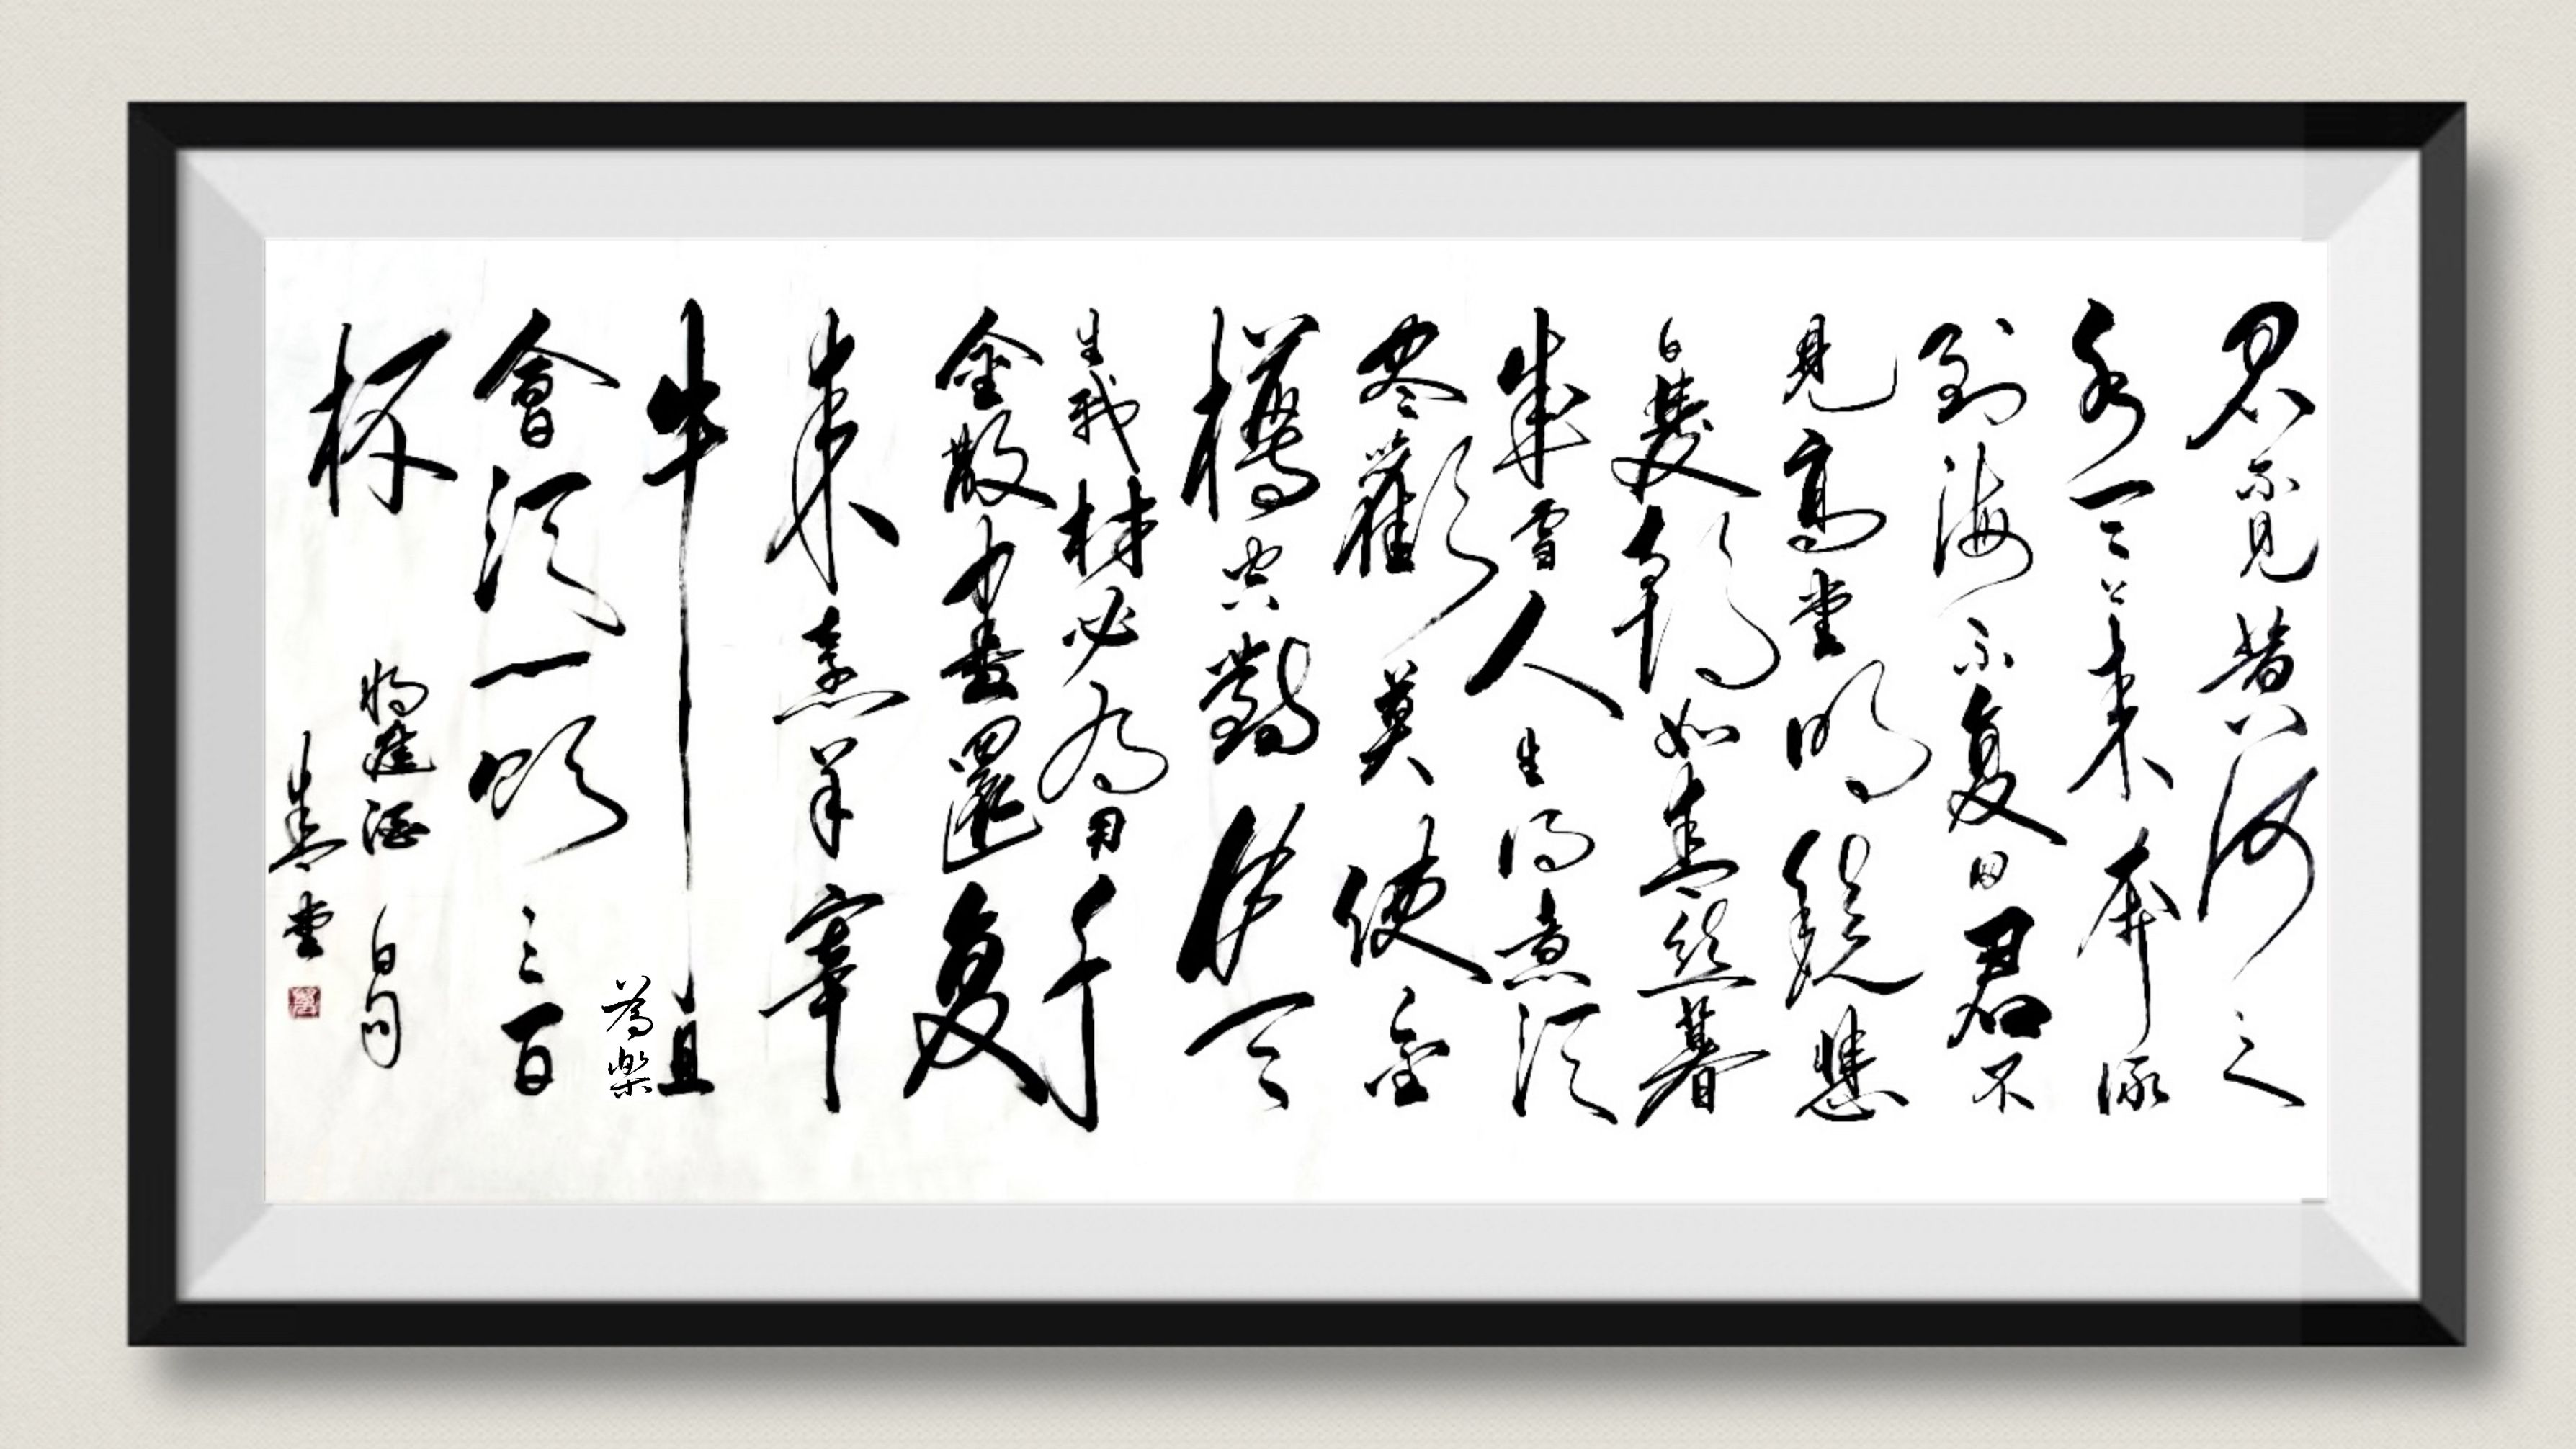 君不見黃河之
水天上來奔流
到海不复回君不
見高堂明鏡悲
白髮朝如青絲暮
成雪人生得意須
尽歡莫使金
樽空對月天
生我材必有用千
金散盡還复
來烹羊宰
牛且
為樂
會須一飲三百
杯
將進酒 白句
青堂